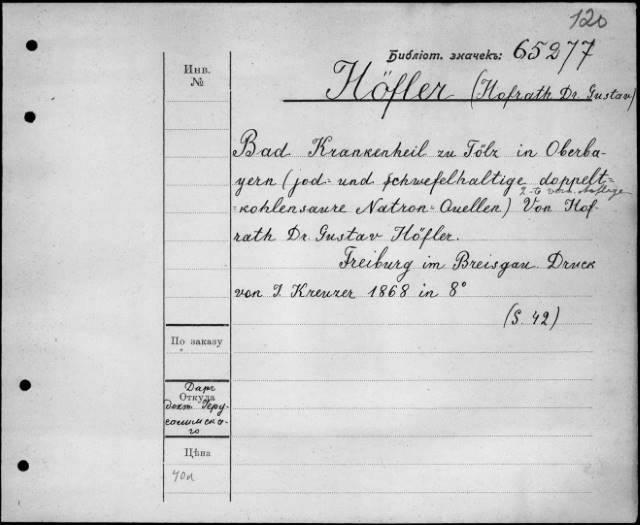 120
Библіот. значекъ: 65277
Höfler (Hofrath Dr. Gustav)
Инв.
№
Bad Krankenheil zu Tölz in Oberba-
yern (jod- und schwefelhaltige doppelt-
2-te verm. Auflage
-kohlensaure Natron-Quellen) Von Hof-
rath Dr. Gustav Höfler.
Freiburg im Breisgau. Druck
von J. Kreuzer 1868 in 8°
(S. 42)
По заказу
Даръ
Откуда
докт. Іеру-
салимска-
го
Цѣна